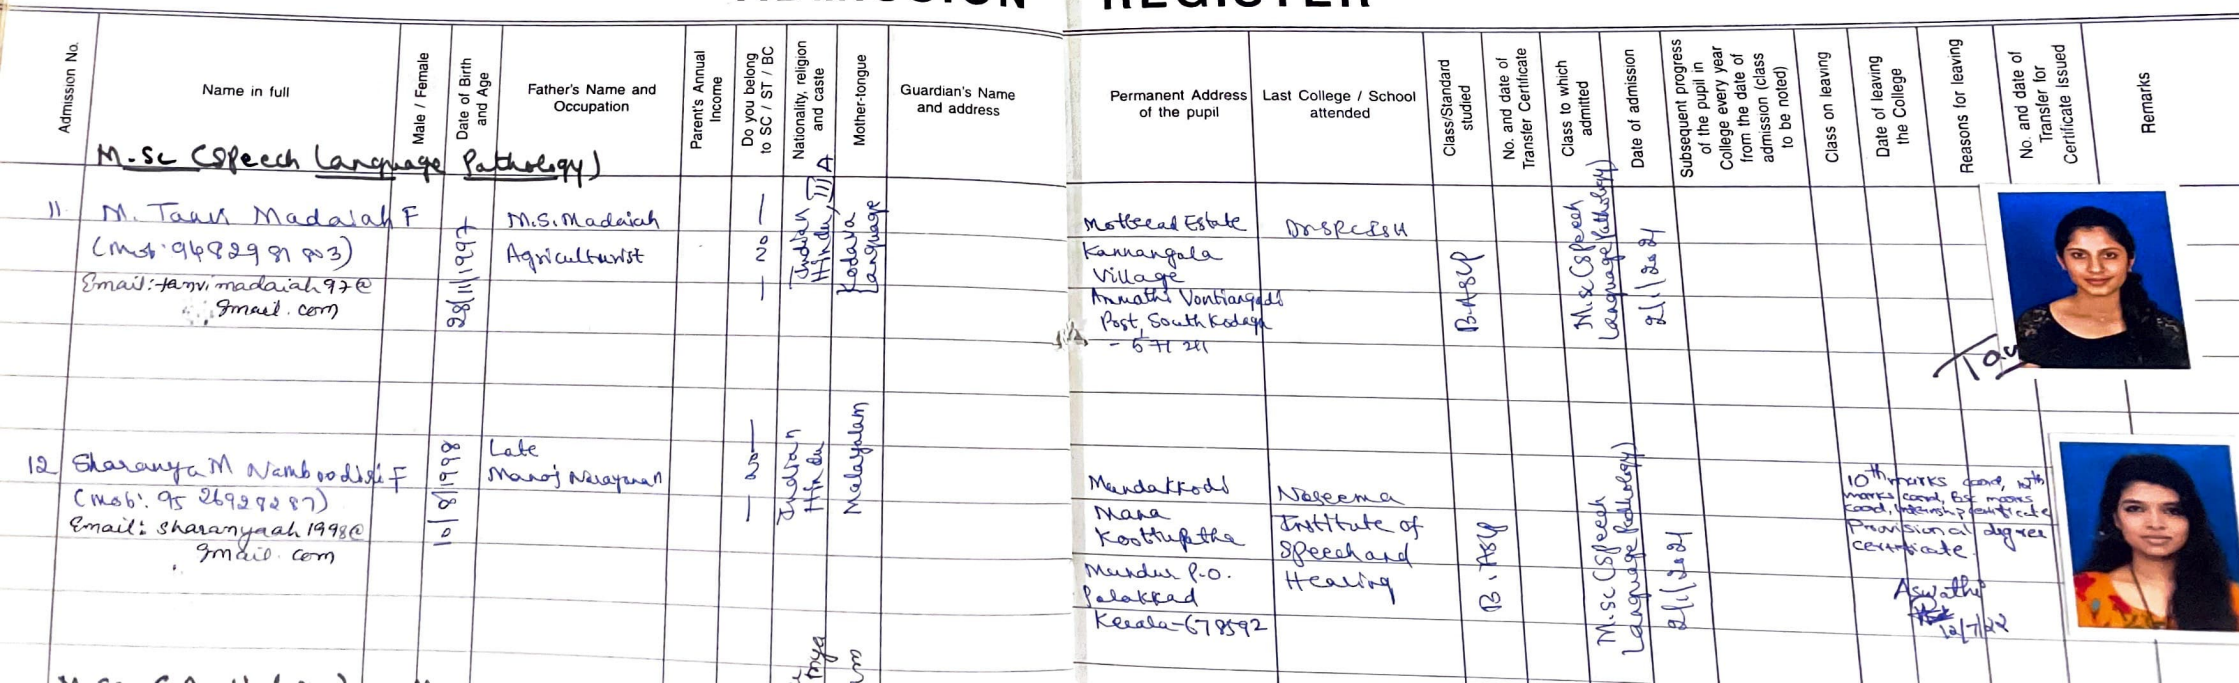 ADMISSION REGISTER
Admission No.
Name in full
Male / Female
Date of Birth
and Age
Father's Name and
Occupation
Parent's Annual
Income
Do you belong
to SC / ST / BC
Nationality, religion
and caste
Mother-tongue
Guardian's Name
and address
Permanent Address
of the pupil
Last College / School
attended
Class/Standard
studied
No. and date of
Transfer Certificate
Class to which
admitted
Date of admission
Subsequent progress
of the pupil in
College every year
from the date of
admission (class
to be noted)
Class on leaving
Date of leaving
the College
Reasons for leaving
No. and date of
Transfer for
Certificate Issued
Remarks
M.Sc (Speech Language Pathology)
11. M. Tanvi Madaiah F
(Mob: 9482981803)
Email: tanvimadaiah97@
gmail.com
28/11/1997
M.S. Madaiah
Agriculturist
No
Indian
Hindu, III A
Kodava
Language
Kannangala
Village
Ammathi Vontiangadi
Post, South Kodagu
- 571 211
DRSRCISH
B.ASLP
M.Sc (Speech
Language Pathology)
2/1/2021
12 Sharanya M Namboodiri F
(Mob: 95 26928287)
Email: sharanyaah1998@
gmail.com
10/8/1998
Late
Manoj Narayanan
No
Indian
Hindu
Malayalam
Mundakkodi
Mana
Koottupatha
Mundur P.O.
Palakkad
Kerala-678592
Naseema
Institute of
Speech and
Hearing
B.ASLP
M.Sc (Speech
Language Pathology)
2/1/2021
10th marks card, 12th
marks card, BSc marks
card, Internship certificate
Provisional degree
certificate.
Aswathi
12/7/22